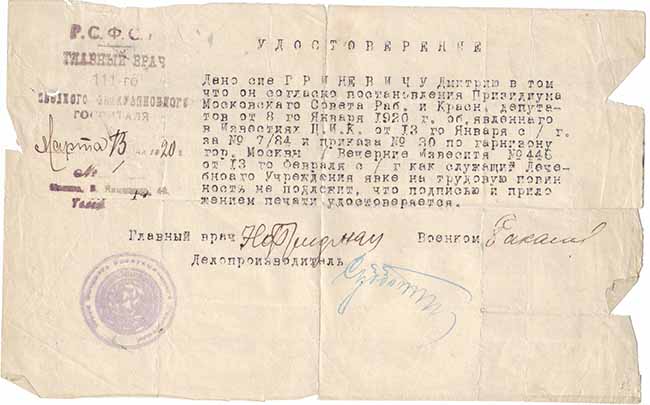 Р.С.Ф.С.Р.
ГЛАВНЫЙ ВРАЧ
111-го
ГОСПИТАЛЯ
Марта 13 1920 г.
№
УДОСТОВЕРЕНИЕ
Дано сие ГРИНЕВИЧУ Дмитрию в том
что он согласно постановления Призидиума
Московскаго Совета Раб. и Красн. депута-
тов от 8 го Января 1920 г. об,явленнаго
в Известиях Ц.И.К. от 13 го Января с / г.
за № 7/84 и приказа № 30 по гарнизону
гор. Москвы / Вечерние Известия № 446
от 13 го Февраля с / г как служищий Лече-
бноаго Учреждения явке на трудовую повин
ность не подлжит, что подписью и прило
жением печати удостоверяется.
Главный врач
Военком
Делопроизводитель